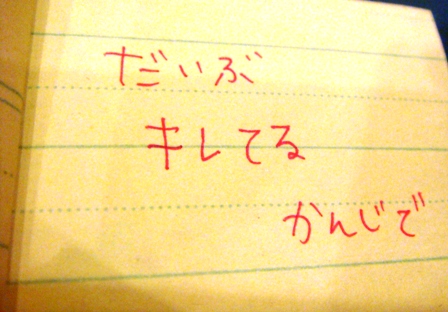 だいぶ
キレてる
かんじで